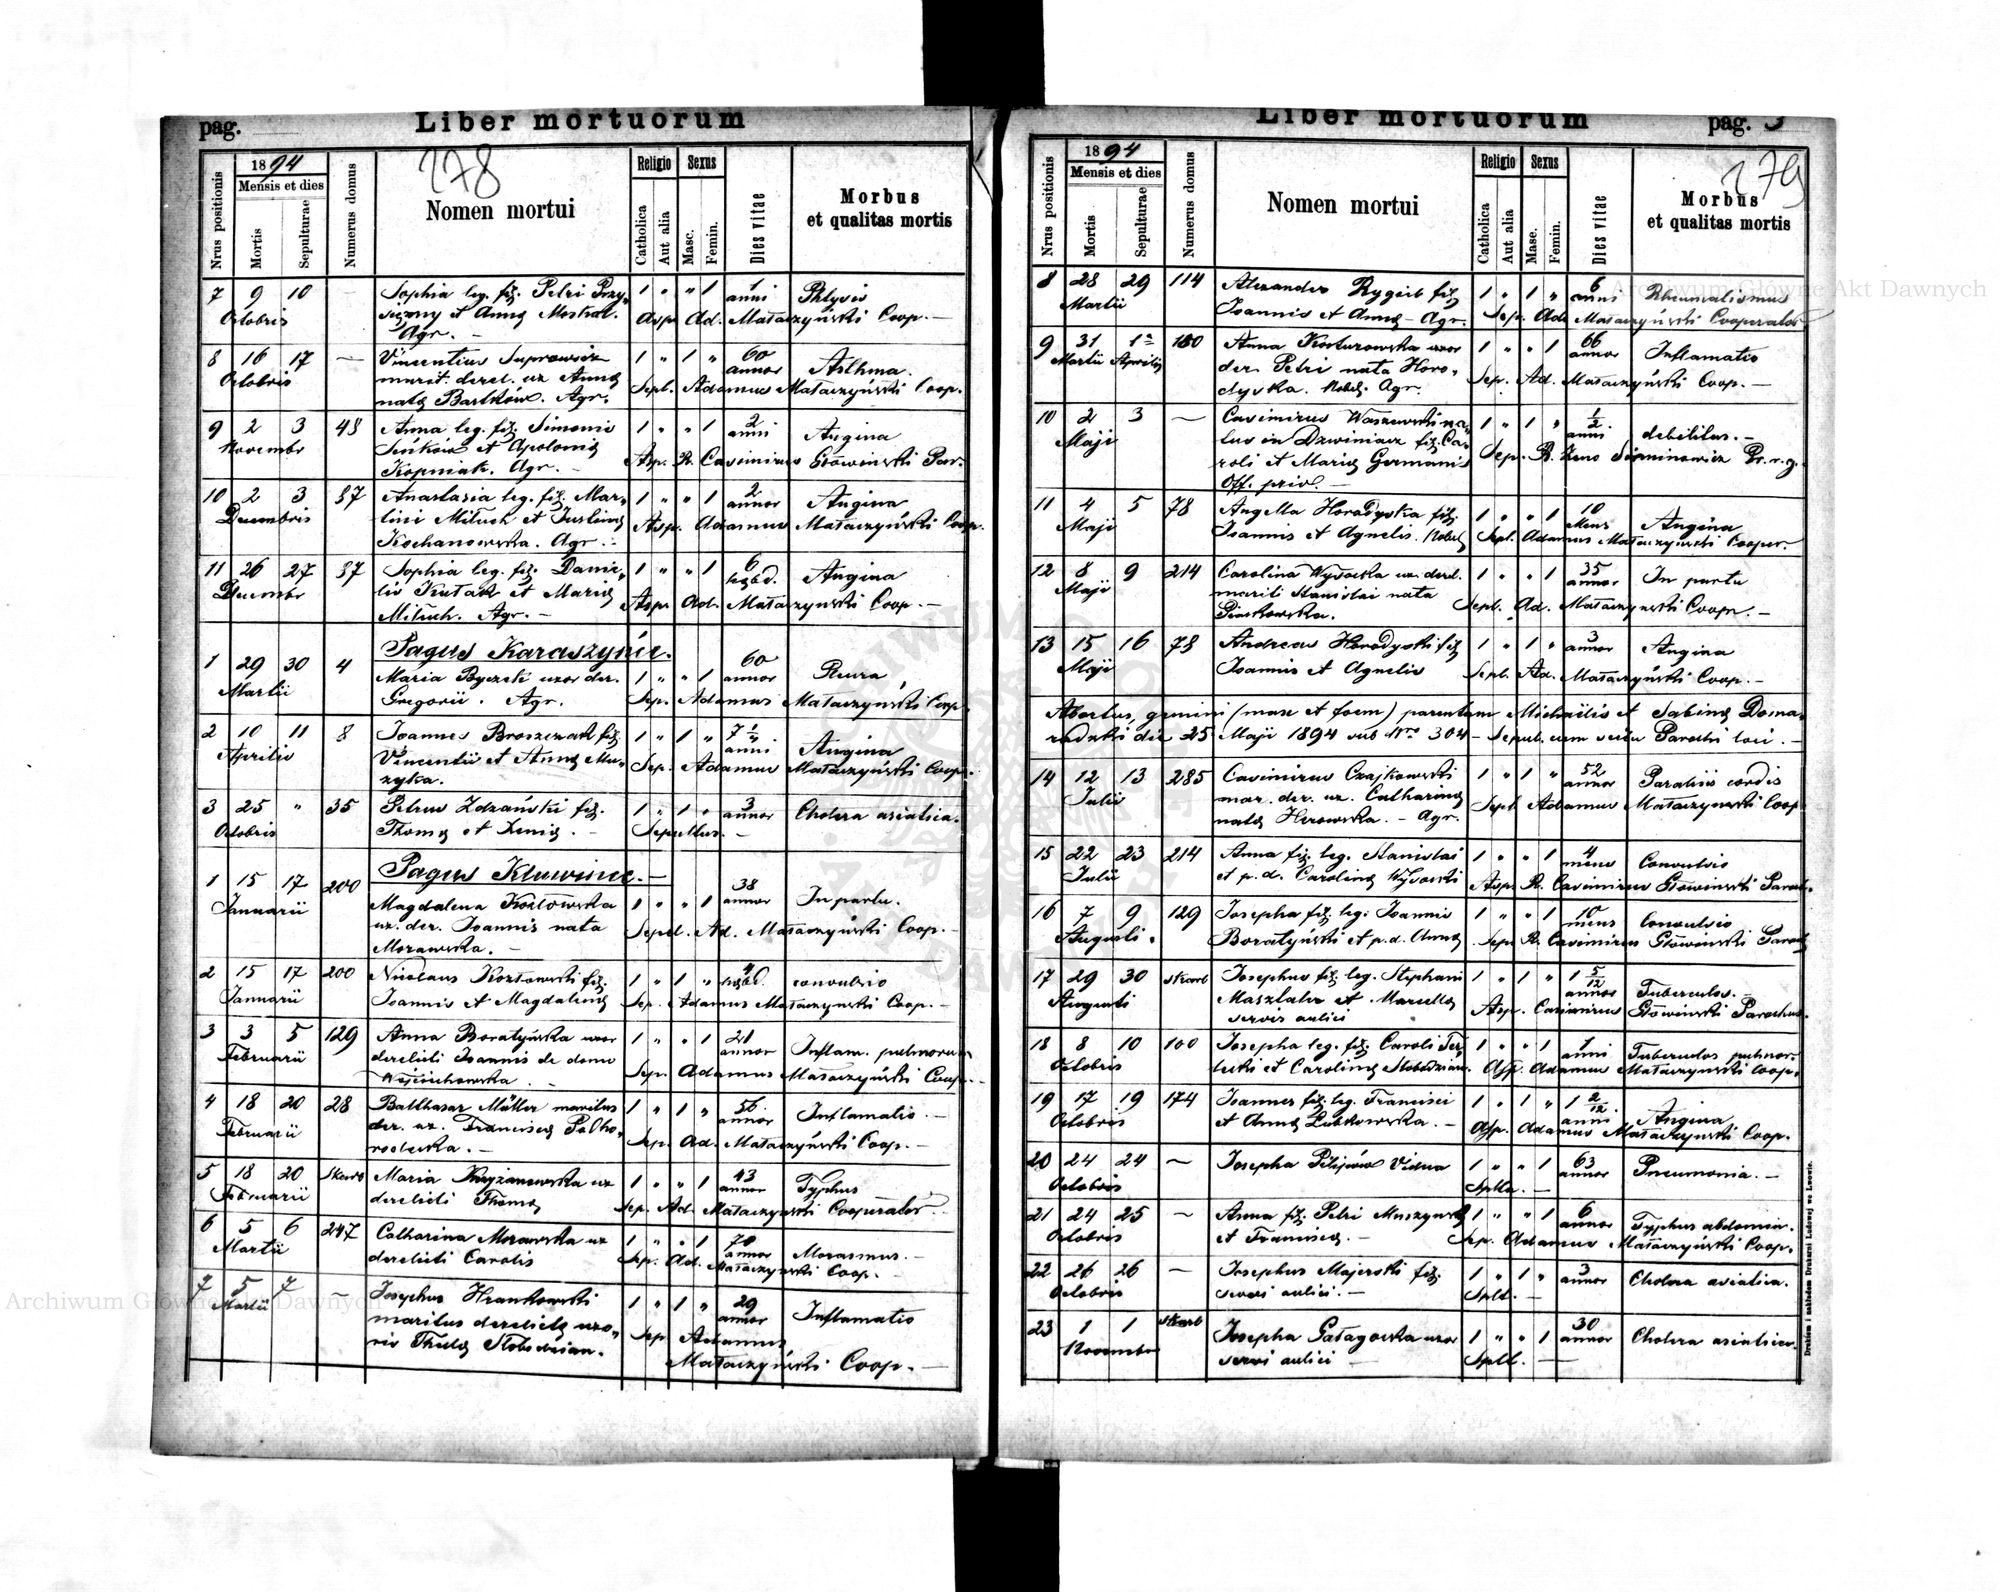 pag.
Liber mortuorum
278
Nrus positionis
1894
Mensis et dies
Mortis
Sepulturae
Numerus domus
Nomen mortui
Religio
Catholica
Aut alia
Sexus
Masc.
Femin.
Dies vitae
Morbus
et qualitas mortis
7 9 10 — Sophia leg. fil. Petri
Octobris
et Anna
Agr. —
1 " " 1 1 anni Phtysis
Asp. Ad. Mataczyński Coop. —
8 16 17 — Vincentius
Octobris
marit. derel. ux Anna
nata Bartków. Agr.
1 " 1 " 60 annor Asthma.
Sept. Adamus Mataczyński Coop.
9 2 3 48 Anna leg. fil. Simonis
Novembr
Sińków et Apolonia
Kopniak. Agr. —
1 " " 1 2 anni Angina
Asp. R. Casimirus Głowiński Par.
10 2 3 37 Anastasia leg. fil. Mar-
Decembris
tini Mituch et Justina
Kochanowska. Agr. —
1 " " 1 2 annor Angina
Asp. Adamus Mataczyński Coop.
11 26 27 37 Sophia leg. fil. Danie-
Decembr
lis Kutak et Maria
Mituch. Agr. —
1 " " 1 6 hebd. Angina
Asp. Ad. Mataczyński Coop. —
Pagus Karaszyńce.
1 29 30 4 Maria Byczek uxor der.
Martii
Gregorii. Agr.
1 " " 1 60 annor
Sep. Adamus Mataczyński Coop.
2 10 11 8 Joannes Broszczak fil.
Aprilis
Vincentii et Anna Mu-
zyka.
1 " 1 " 7 anni Angina
Sep. Adamus Mataczyński Coop.
3 25 " 35 Petrus Zdzański fil.
Octobris
Thoma et Xenia. —
1 " 1 " 3 annor Cholera asiatica.
Sepultus. —
Pagus Kluwińce. —
1 15 17 200 Magdalena Kozłowska
Januarii
ux. der. Joannis nata
Morawska. —
1 " " 1 38 annor In partu.
Sepel. Ad. Mataczyński Coop. —
2 15 17 200 Nicolaus Kozłowski fil.
Januarii
Joannis et Magdalena
1 " 1 " hebd. convulsio
Sep. Adamus Mataczyński Coop. —
3 3 5 129 Anna Boratyńska uxor
Februarii
derelicti Joannis de domo
Wojciechowska. —
1 " " 1 21 annor Inflam. pulmorum
Sep. Adamus Mataczyński Coop. —
4 18 20 28 Balthasar Müller maritus
Februarii
der. ux. Francisca Podho-
rodecka. —
1 " 1 " 56 annor Inflamatio. —
Sep. Ad. Mataczyński Coop. —
5 18 20 Skarb Maria Krzyżanowska ux
Februarii
derelicti Thoma
1 " " 1 43 annor Typhus
Sep. Ad. Mataczyński Cooperator.
6 5 6 247 Catharina Morawska ux
Martii
derelicti Carolis
1 " " 1 70 annor Marasmus. —
Sep. Ad. Mataczyński Coop. —
7 5 7 — Josephus Hrankowski
Martii
maritus derelicta uxo-
ris Thecla Słobodzian.
1 " 1 " 29 annor Inflamatio
Sep. Adamus
Mataczyński Coop. —
Liber mortuorum
pag. 3
279
Nrus positionis
1894
Mensis et dies
Mortis
Sepulturae
Numerus domus
Nomen mortui
Religio
Catholica
Aut alia
Sexus
Masc.
Femin.
Dies vitae
Morbus
et qualitas mortis
8 28 29 114 Alexander Rygiel fil.
Martii
Joannis et Anna — Agr.
1 " 1 " 6 anni Rheumatismus
Sep. Ad. Mataczyński Cooperator
9 31 1 180 Anna Kosturowska uxor
Martii Aprilis
der. Petri nata Horo-
dyska. Nobil. Agr.
1 " " 1 66 annor Inflamatio
Sep. Ad. Mataczyński Coop. —
10 2 3 — Casimirus Waszewski na-
Maji
tus in Dzwiniacz fil. Ca-
roli et Maria Germanis
Off. priv. —
1 " 1 " 1/2 anni debilitas. —
Sep. R. Zeno
11 4 5 78 Angella Horodyska fil.
Maji
Joannis et Agnetis. Nobil.
1 " " 1 10 Mens Angina
Sept. Adamus Mataczyński Cooper.
12 8 9 214 Carolina Wysocka ux. derel.
Maji
mariti Stanislai nata
Piaskowska.
1 " " 1 35 annor In partu
Sept. Ad. Mataczyński Coop. —
13 15 16 78 Andreas Horodyski fil.
Maji
Joannis et Agnetis
1 " 1 " 3 annor Angina
Sept. Ad. Mataczyński Coop. —
Abortus, gemini (masc et foem) parentum Michaelis et Sabina Doma-
radzki die 25 Maji 1894 sub Nro 304 — Sepult. cum scitu Parochi loci. —
14 12 13 285 Casimirus Czajkowski
Julii
mar. der. ux. Catharina
nata Herowska. — Agr.
1 " 1 " 52 annor Paralisis cordis
Sept. Adamus Mataczyński Coop.
15 22 23 214 Anna fil. leg. Stanislai
Julii
et p. d. Carolina Wysocki
1 " " 1 4 mens Convulsio
Asp. R. Casimirus Głowiński Paroch.
16 7 9 129 Josepha fil. leg. Joannis
Augusti.
Boratyński et p. d. Anna
1 " " 1 10 mens Convulsio
Sep. R. Casimirus Głowiński Paroch
17 29 30 Skarb Josephus fil. leg. Stephani
Augusti
Masztaler et Marcella
servis aulici
1 " 1 " 1 5/12 annor Tuberculos. —
Asp. Casimirus Głowiński Parochus.
18 8 10 100 Josepha leg. fil. Caroli Ter-
Octobris
lecki et Carolina Słobodzian.
1 " " 1 1 anni Tuberculos pulmor.
Asp. Adamus Mataczyński Coop.
19 17 19 174 Joannes fil. leg. Francisci
Octobris
et Anna Lubkowska. —
1 " 1 " 1 2/12 anni Angina
Asp. Adamus Mataczyński Coop.
20 24 24 — Josepha Vidua
Octobris
1 " " 1 63 annor Pneumonia. —
Splta. —
21 24 25 — Anna fil. Petri Muszyński
Octobris
et Francisca. —
1 " " 1 6 annor Typhus abdomin.
Sep. Adamus Mataczyński Coop.
22 26 26 — Josephus Majerski fil.
Octobris
servi aulici. —
1 " 1 " 3 annor Cholera asiatica.
Splt. —
23 1 1 Skarb Josepha Pałagowska uxor
Novembr
servi aulici —
1 " " 1 30 annor Cholera asiatica.
Splt. —
Drukiem i nakładem Drukarni Ludowej we Lwowie.
Archiwum Główne Akt Dawnych
Archiwum Główne Akt Dawnych